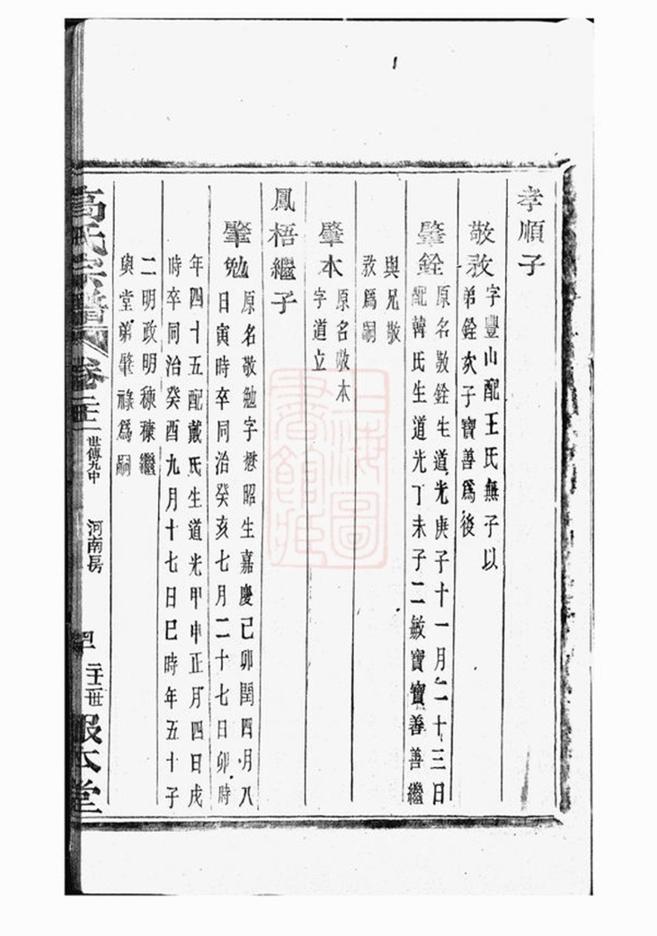 孝順子
敬敦
字豐山配王氏無子以
弟銓次子寶善爲後
肇銓
原名敦銓生道光庚子十一月二十三日
配韓氏生道光丁未子二敏寶寶善善繼
與兄敬
敦爲嗣
肇本
原名敬本
字道立
鳳梧繼子
肇勉
原名敬勉字懋昭生嘉慶己卯閏四月八
日寅時卒同治癸亥七月二十七日卯時
年四十五配戴氏生道光甲申正月四日戌
時卒同治癸酉九月十七日巳時年五十子
二明政明穟穟繼
與堂弟肇祿爲嗣
高氏宗譜
卷二十二
世傳九中
河南房
二十二世
報本堂
上海圖
書館藏